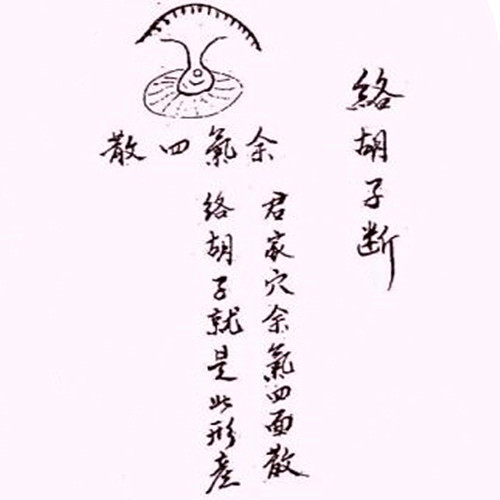 絡胡子断
余氣四散
君家穴余氣四面散
絡胡子就是此形産